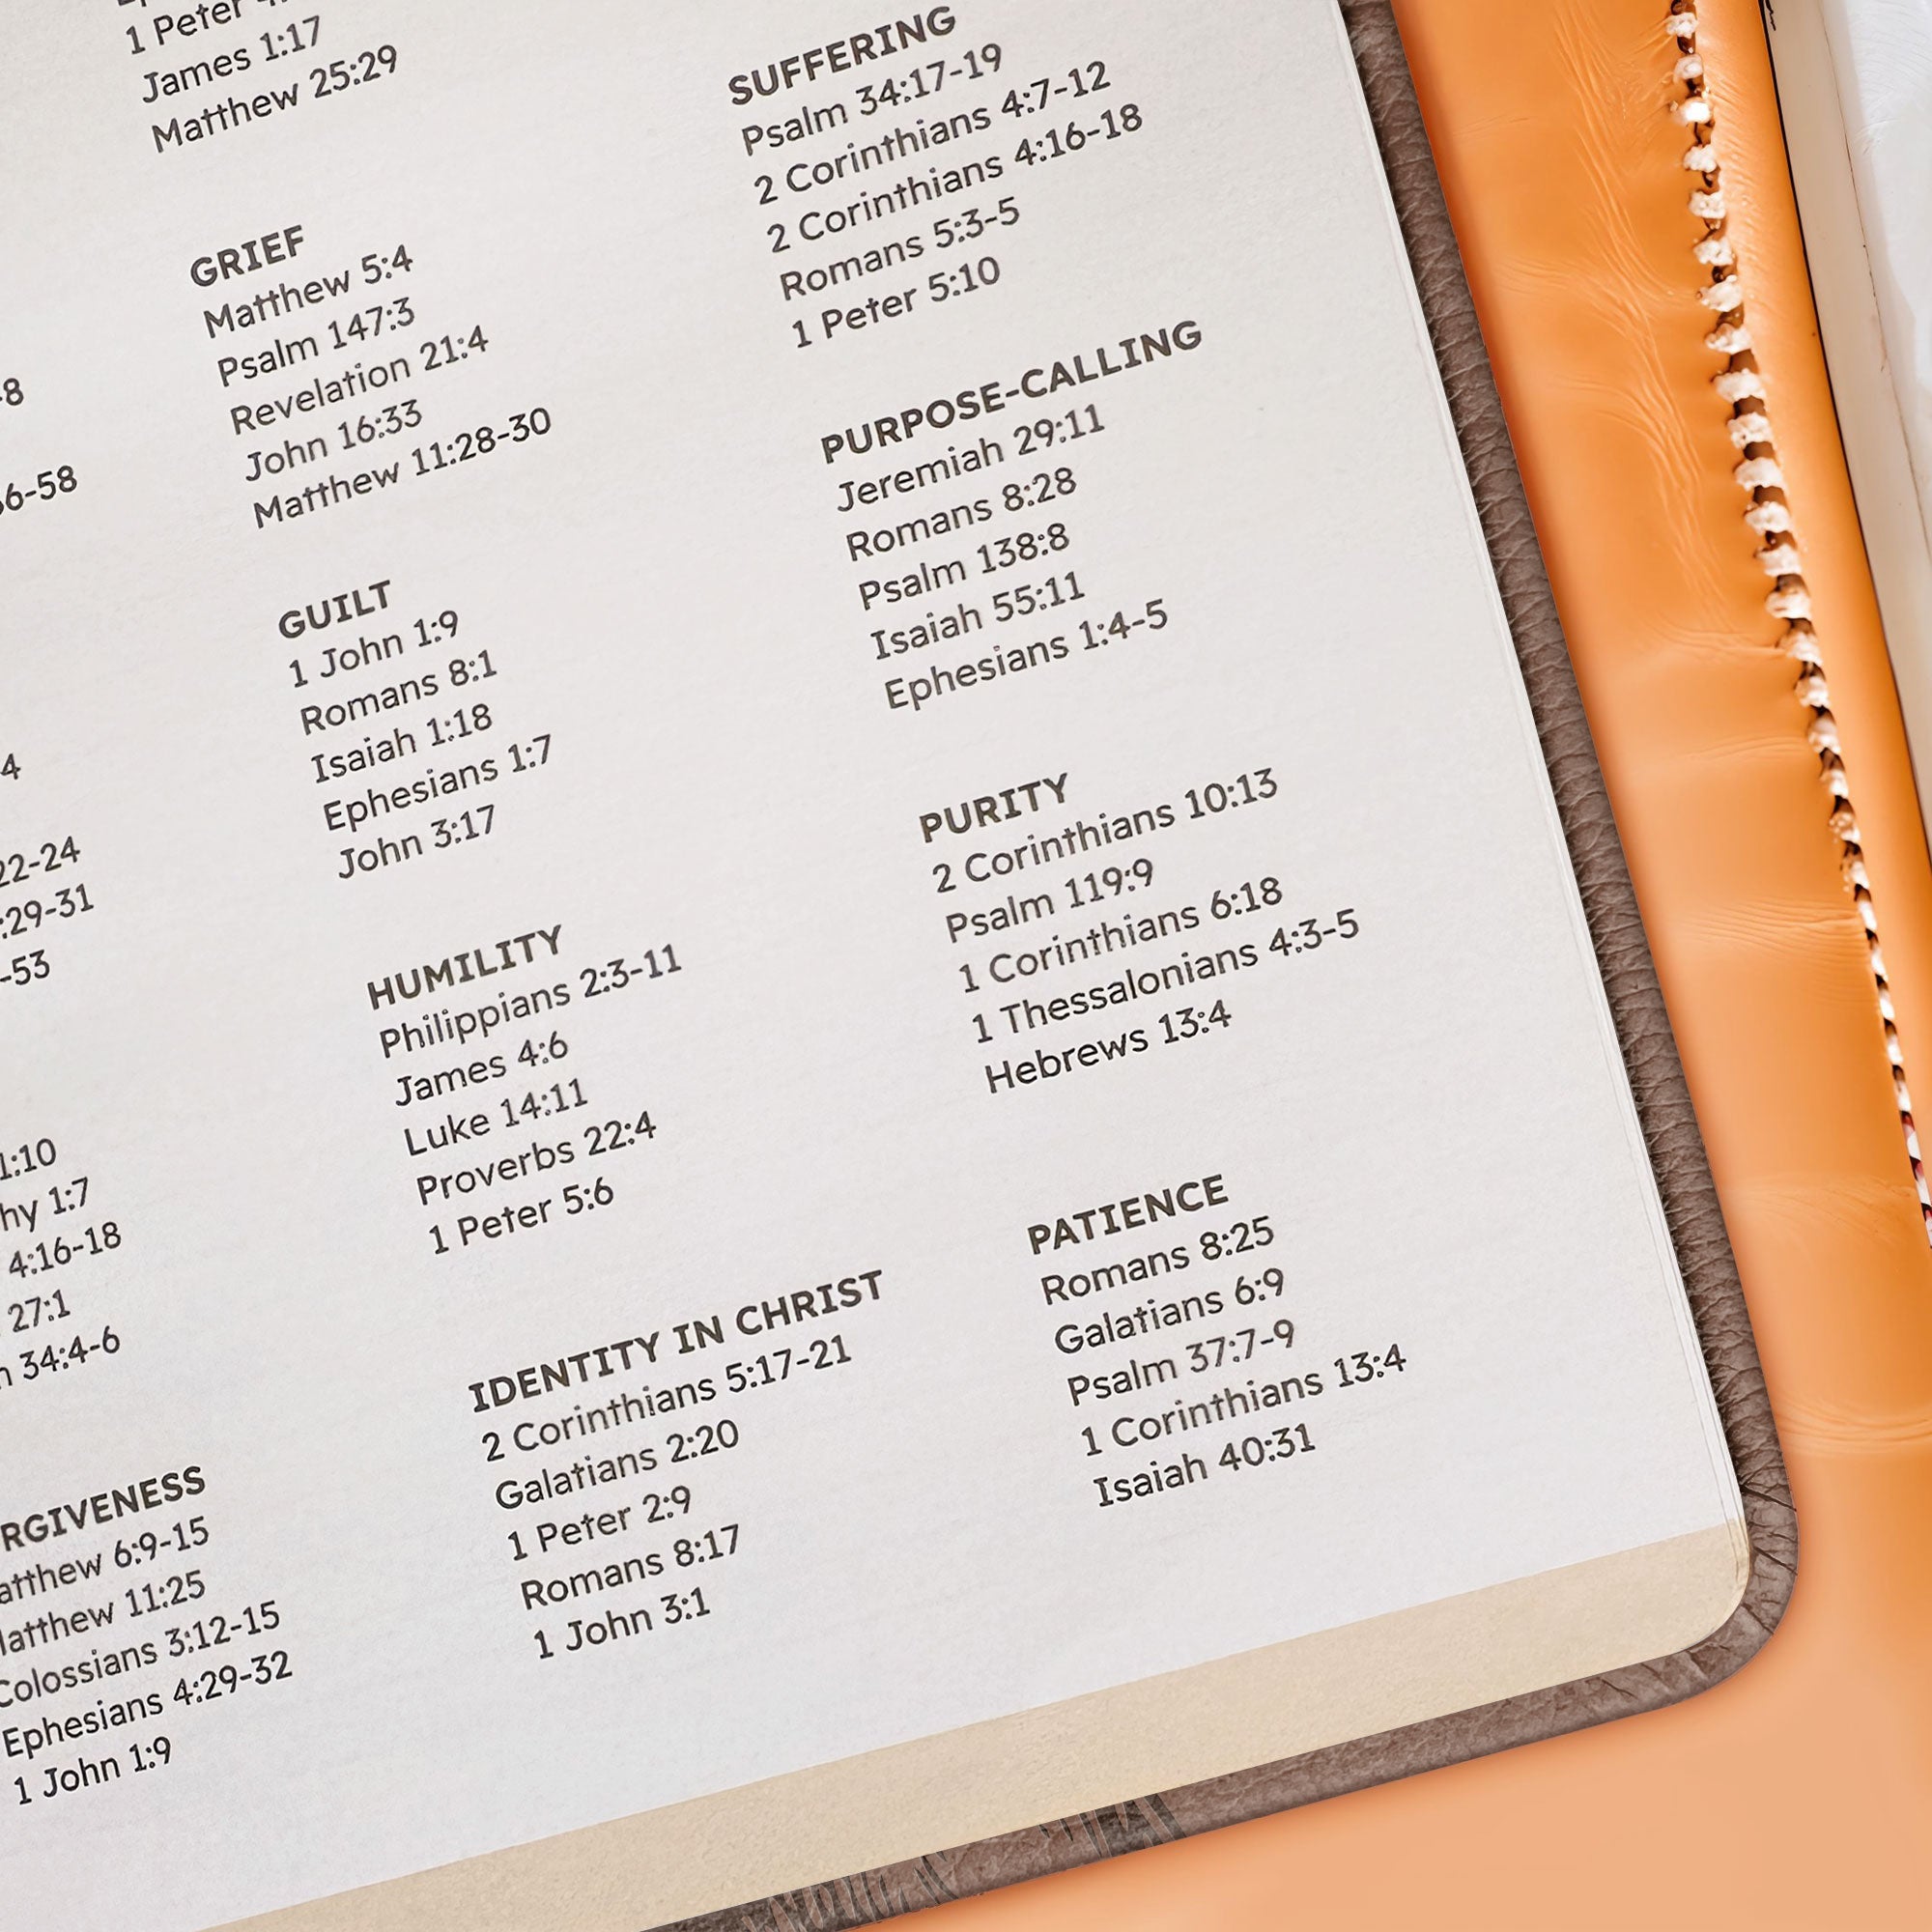 -8
56-58
4
22-24
:29-31
-53
1:10
hy 1:7
4:16-18
27:1
34:4-6
RGIVENESS
atthew 6:9-15
atthew 11:25
Colossians 3:12-15
Ephesians 4:29-32
1 John 1:9
1 Peter
James 1:17
Matthew 25:29
GRIEF
Matthew 5:4
Psalm 147:3
Revelation 21:4
John 16:33
Matthew 11:28-30
GUILT
1 John 1:9
Romans 8:1
Isaiah 1:18
Ephesians 1:7
John 3:17
HUMILITY
Philippians 2:3-11
James 4:6
Luke 14:11
Proverbs 22:4
1 Peter 5:6
IDENTITY IN CHRIST
2 Corinthians 5:17-21
Galatians 2:20
1 Peter 2:9
Romans 8:17
1 John 3:1
SUFFERING
Psalm 34:17-19
2 Corinthians 4:7-12
2 Corinthians 4:16-18
Romans 5:3-5
1 Peter 5:10
PURPOSE-CALLING
Jeremiah 29:11
Romans 8:28
Psalm 138:8
Isaiah 55:11
Ephesians 1:4-5
PURITY
2 Corinthians 10:13
Psalm 119:9
1 Corinthians 6:18
1 Thessalonians 4:3-5
Hebrews 13:4
PATIENCE
Romans 8:25
Galatians 6:9
Psalm 37:7-9
1 Corinthians 13:4
Isaiah 40:31